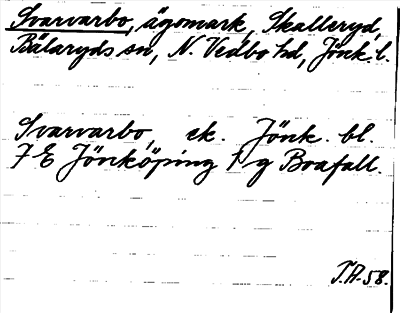 Svarvarbo, ägomark, Skalleryd,
Bälaryds sn, N. Vedbo hd, Jönk. l.
Svarvarbo, ek. Jönk. bl.
7 E Jönköping 1 g Boafall.
T.A-58.